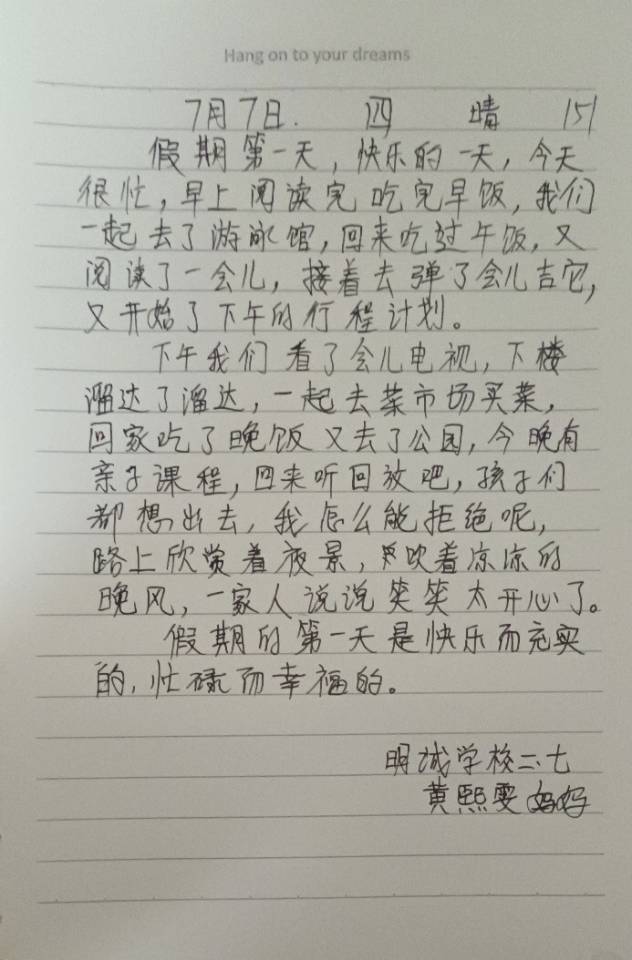 Hang on to your dreams
7月7日. 四 晴 151
假期第一天，快乐的一天，今天
很忙，早上阅读完吃完早饭，我们
一起去了游泳馆，回来吃过午饭，又
阅读了一会儿，接着去弹了会儿吉它，
又开始了下午的行程计划。
下午我们看了会儿电视，下楼
溜达了溜达，一起去菜市场买菜，
回家吃了晚饭又去了公园，今晚有
亲子课程，回来听回放吧，孩子们
都想出去，我怎么能拒绝呢，
路上欣赏着夜景，吹着凉凉的
晚风，一家人说说笑笑太开心了。
假期的第一天是快乐而充实
的，忙碌而幸福的。
明诚学校二.七
黄熙雯妈妈